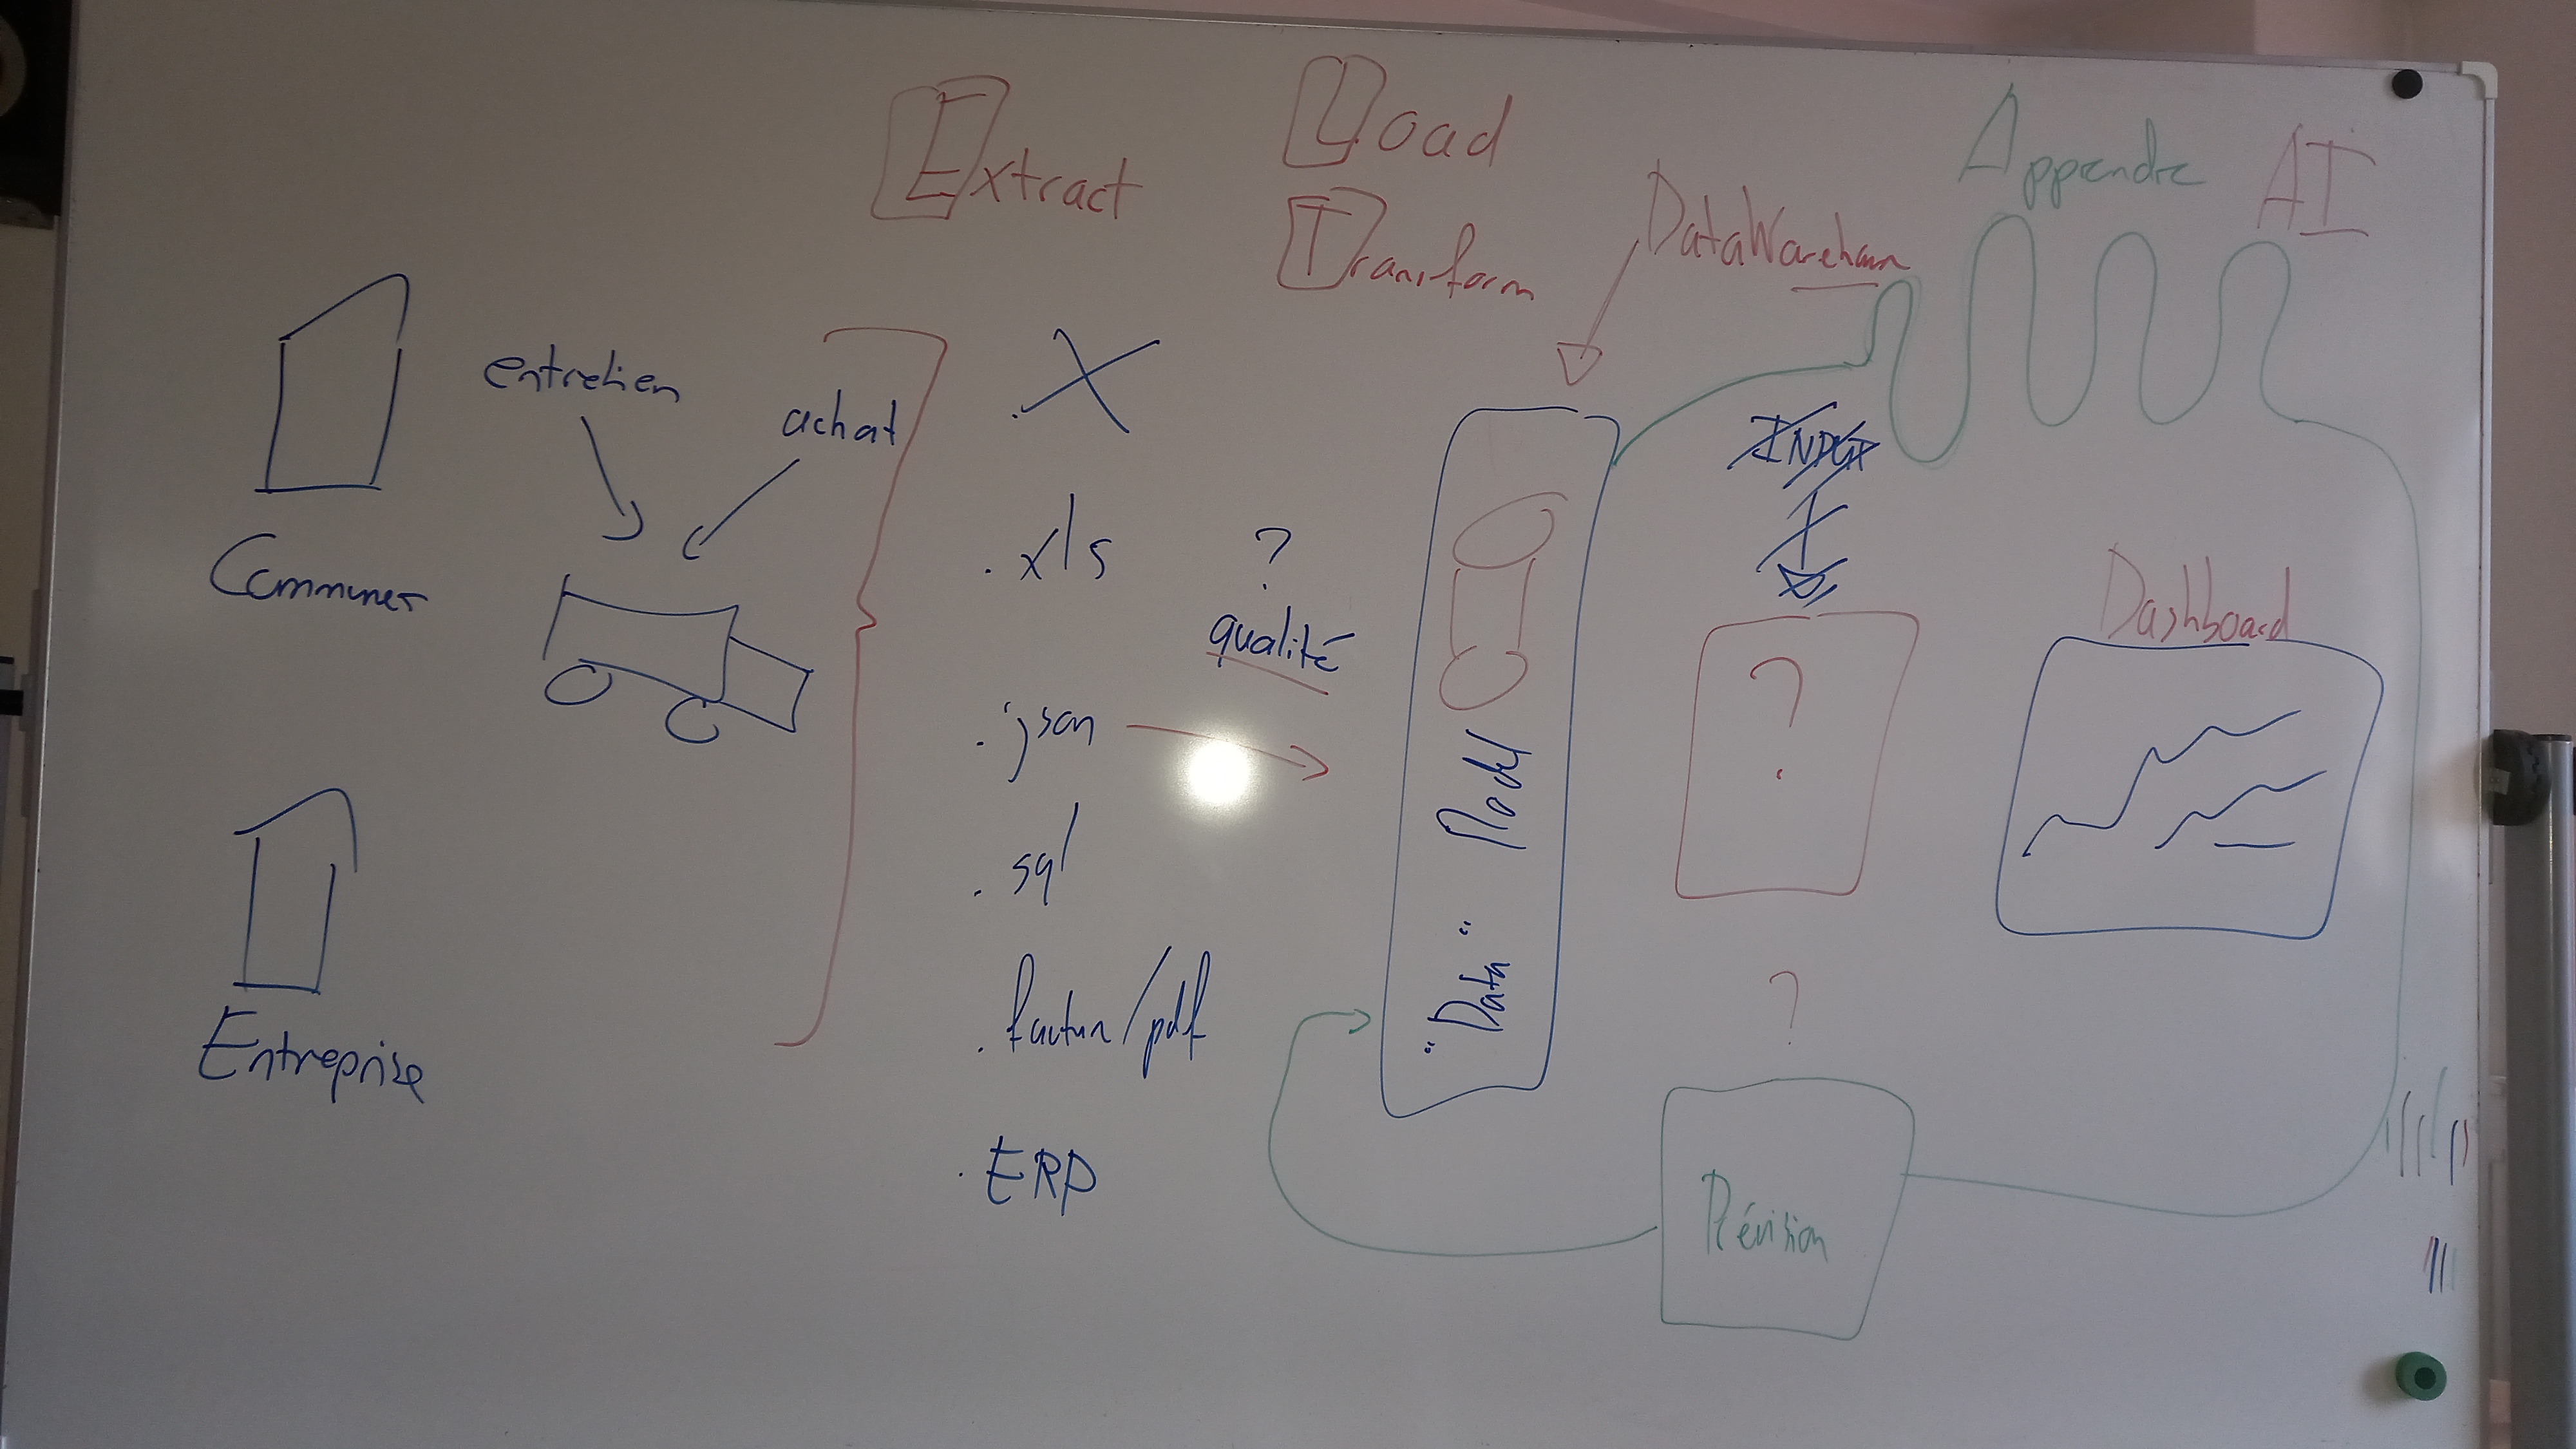 Extract
Load
Transform
DataWarehouse
Apprendre
AI
entretien
achat
Communes
Entreprise
X
. xls
. json
. sql
. factur/pdf
. ERP
?
qualité
"Data" Model
?
?
Dashboard
Révision